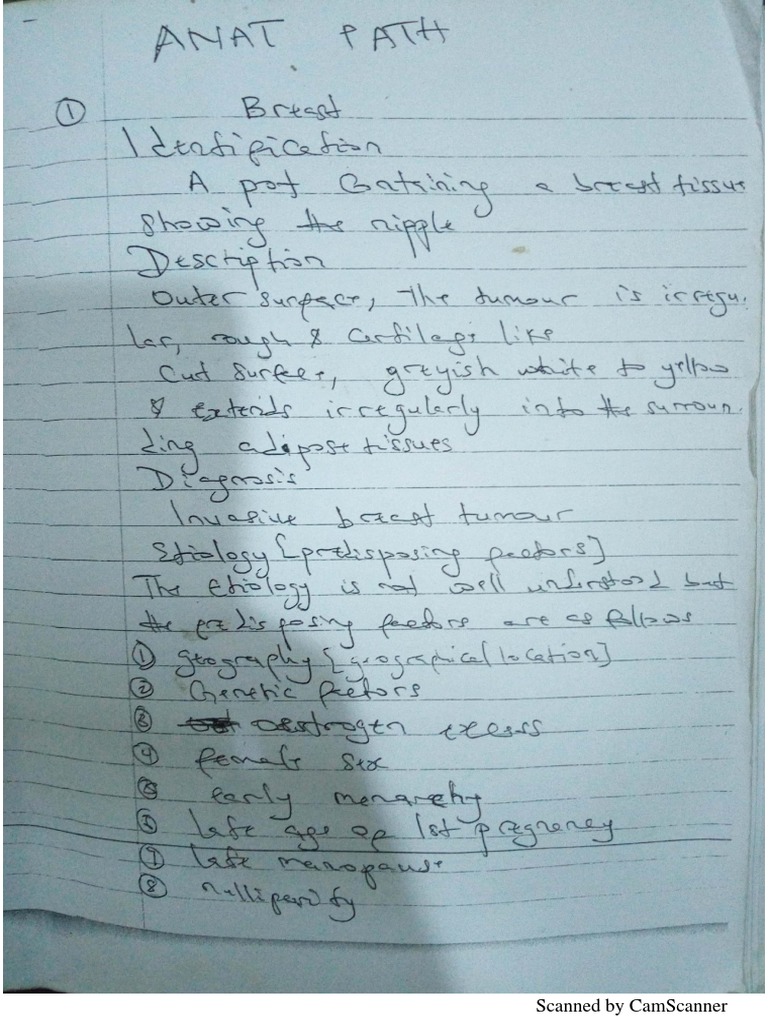 ANAT PATH
① Breast
Identification
A pot Containing a breast tissue
showing the nipple
Description
Outer surface, The tumour is irregu.
lar, rough & Cartilage like
Cut Surface, greyish white to yellow
& extends irregularly into the surroun.
ding adipose tissues
Diagnosis
Invasive breast tumour
Etiology [predisposing factors]
The etiology is not well understood but
the predisposing factors are as follows
① geography [geographical location]
② Genetic factors
③ oestrogen excess
④ female sex
⑤ early menarchy
⑥ late age of 1st pregnency
⑦ late menopause
⑧ nulliparity
Scanned by CamScanner